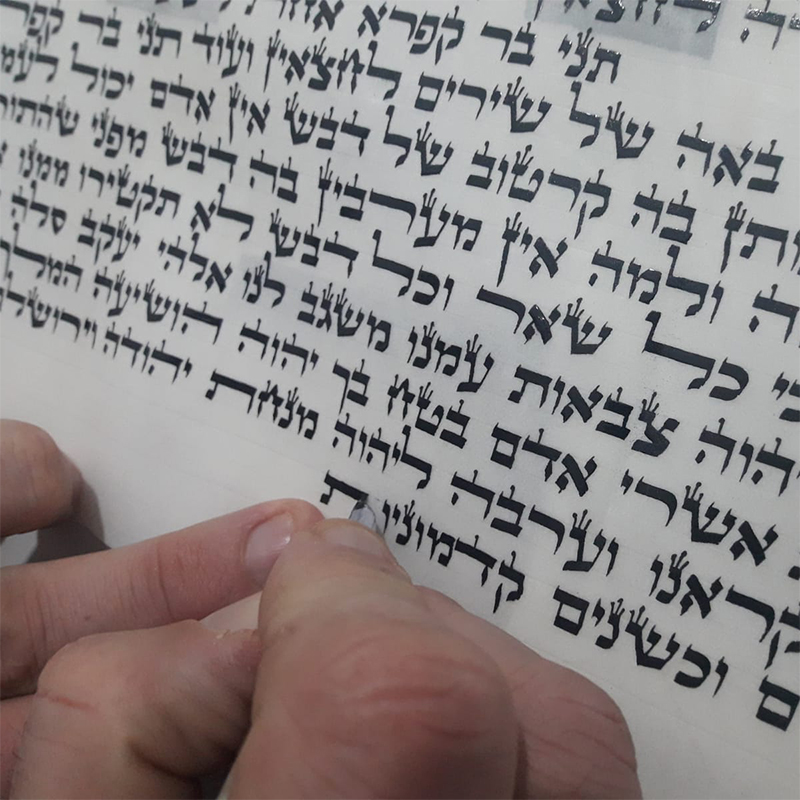 לחצאין
תני בר קפרא אחת
באה של שירים לחצאין ועוד תני בר קפר
ותן בה קרטוב של דבש אין אדם יכול לעמ
ה ולמה אין מערבין בה דבש מפני שהתור
כי כל שאר וכל דבש לא תקטירו ממנו
יהוה צבאות עמנו משגב לנו אלהי יעקב סלה
אשרי אדם בטח בך יהוה הושיעה המלך
קראנו וערבה ליהוה מנחת יהודה וירושל
ם וכשנים קדמוניות